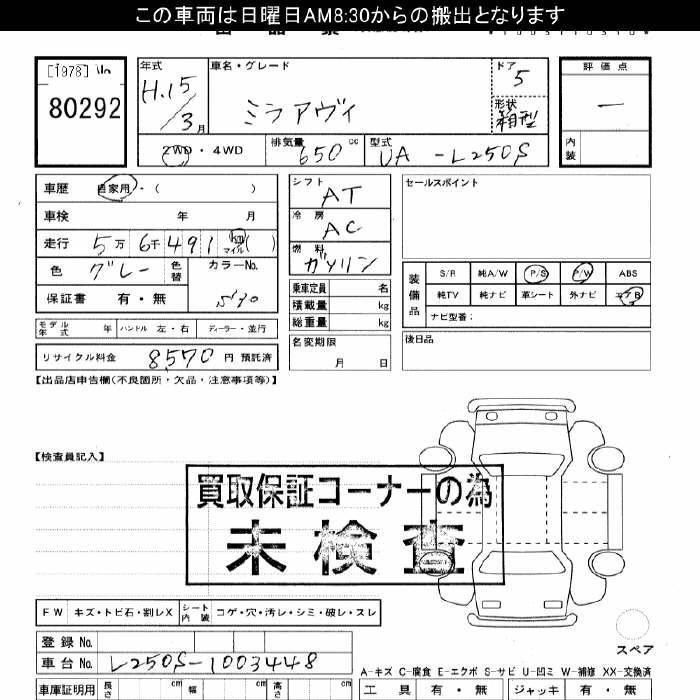 この車両は日曜日AM8:30からの搬出となります
[1978]
80292
年式
H.15/3月
車名・グレード
ミラアヴィ
ドア
5
形状
箱型
評価点
―
内装
2WD・4WD
排気量
650cc
型式
UA-L250S
車歴 自家用・( )
車検 年 月
走行 5万6千491km マイル( )
色 グレー 色替 カラーNo.
保証書 有・無
シフト
AT
冷房
AC
燃料
ガソリン
乗車定員 名
積載量 kg
総重量 kg
名変期限
月 日
セールスポイント
装備品 S/R 純A/W P/S P/W ABS
純TV 純ナビ 革シート 外ナビ エアB
ナビ型番:
後日品
モデル年式 年 ハンドル 左・右 ディーラー・並行
リサイクル料金 8570円 預託済
【出品店申告欄(不良箇所・欠品・注意事項等)】
【検査員記入】
買取保証コーナーの為
未検査
FW キズ・トビ石・割レX シート内装 コゲ・穴・汚レ・シミ・破レ・スレ
スペア
登録No.
車台No. L250S-1003448
A-キズ C-腐食 E-エクボ S-サビ U-凹ミ W-補修 XX-交換済
車庫証明用 長さ cm 幅 cm 高さ cm
工具 有・無 ジャッキ 有・無